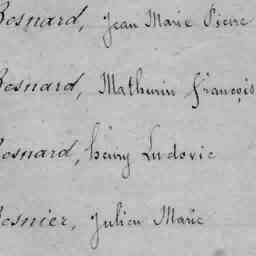 Besnard, Jean Marie Pierre
Besnard, Mathurin François
Besnard, henry Ludovic
Besnier, Julien Marie